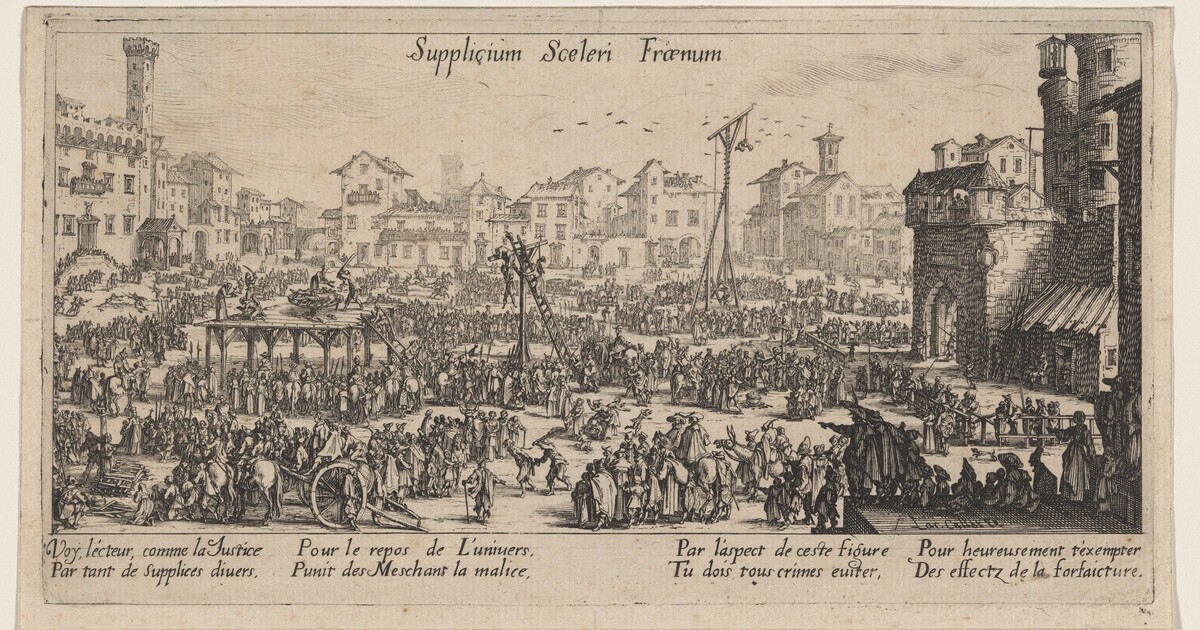 Suppliçium Sceleri Frænum
Voy, lécteur, comme la Justice
Par tant de Supplices diuers,
Pour le repos de L'uniuers,
Punit des Meschant la malice,
Par l'aspect de ceste figure
Tu dois tous crimes euiter,
Pour heureusement t'exempter
Des effectz de la forfaicture.